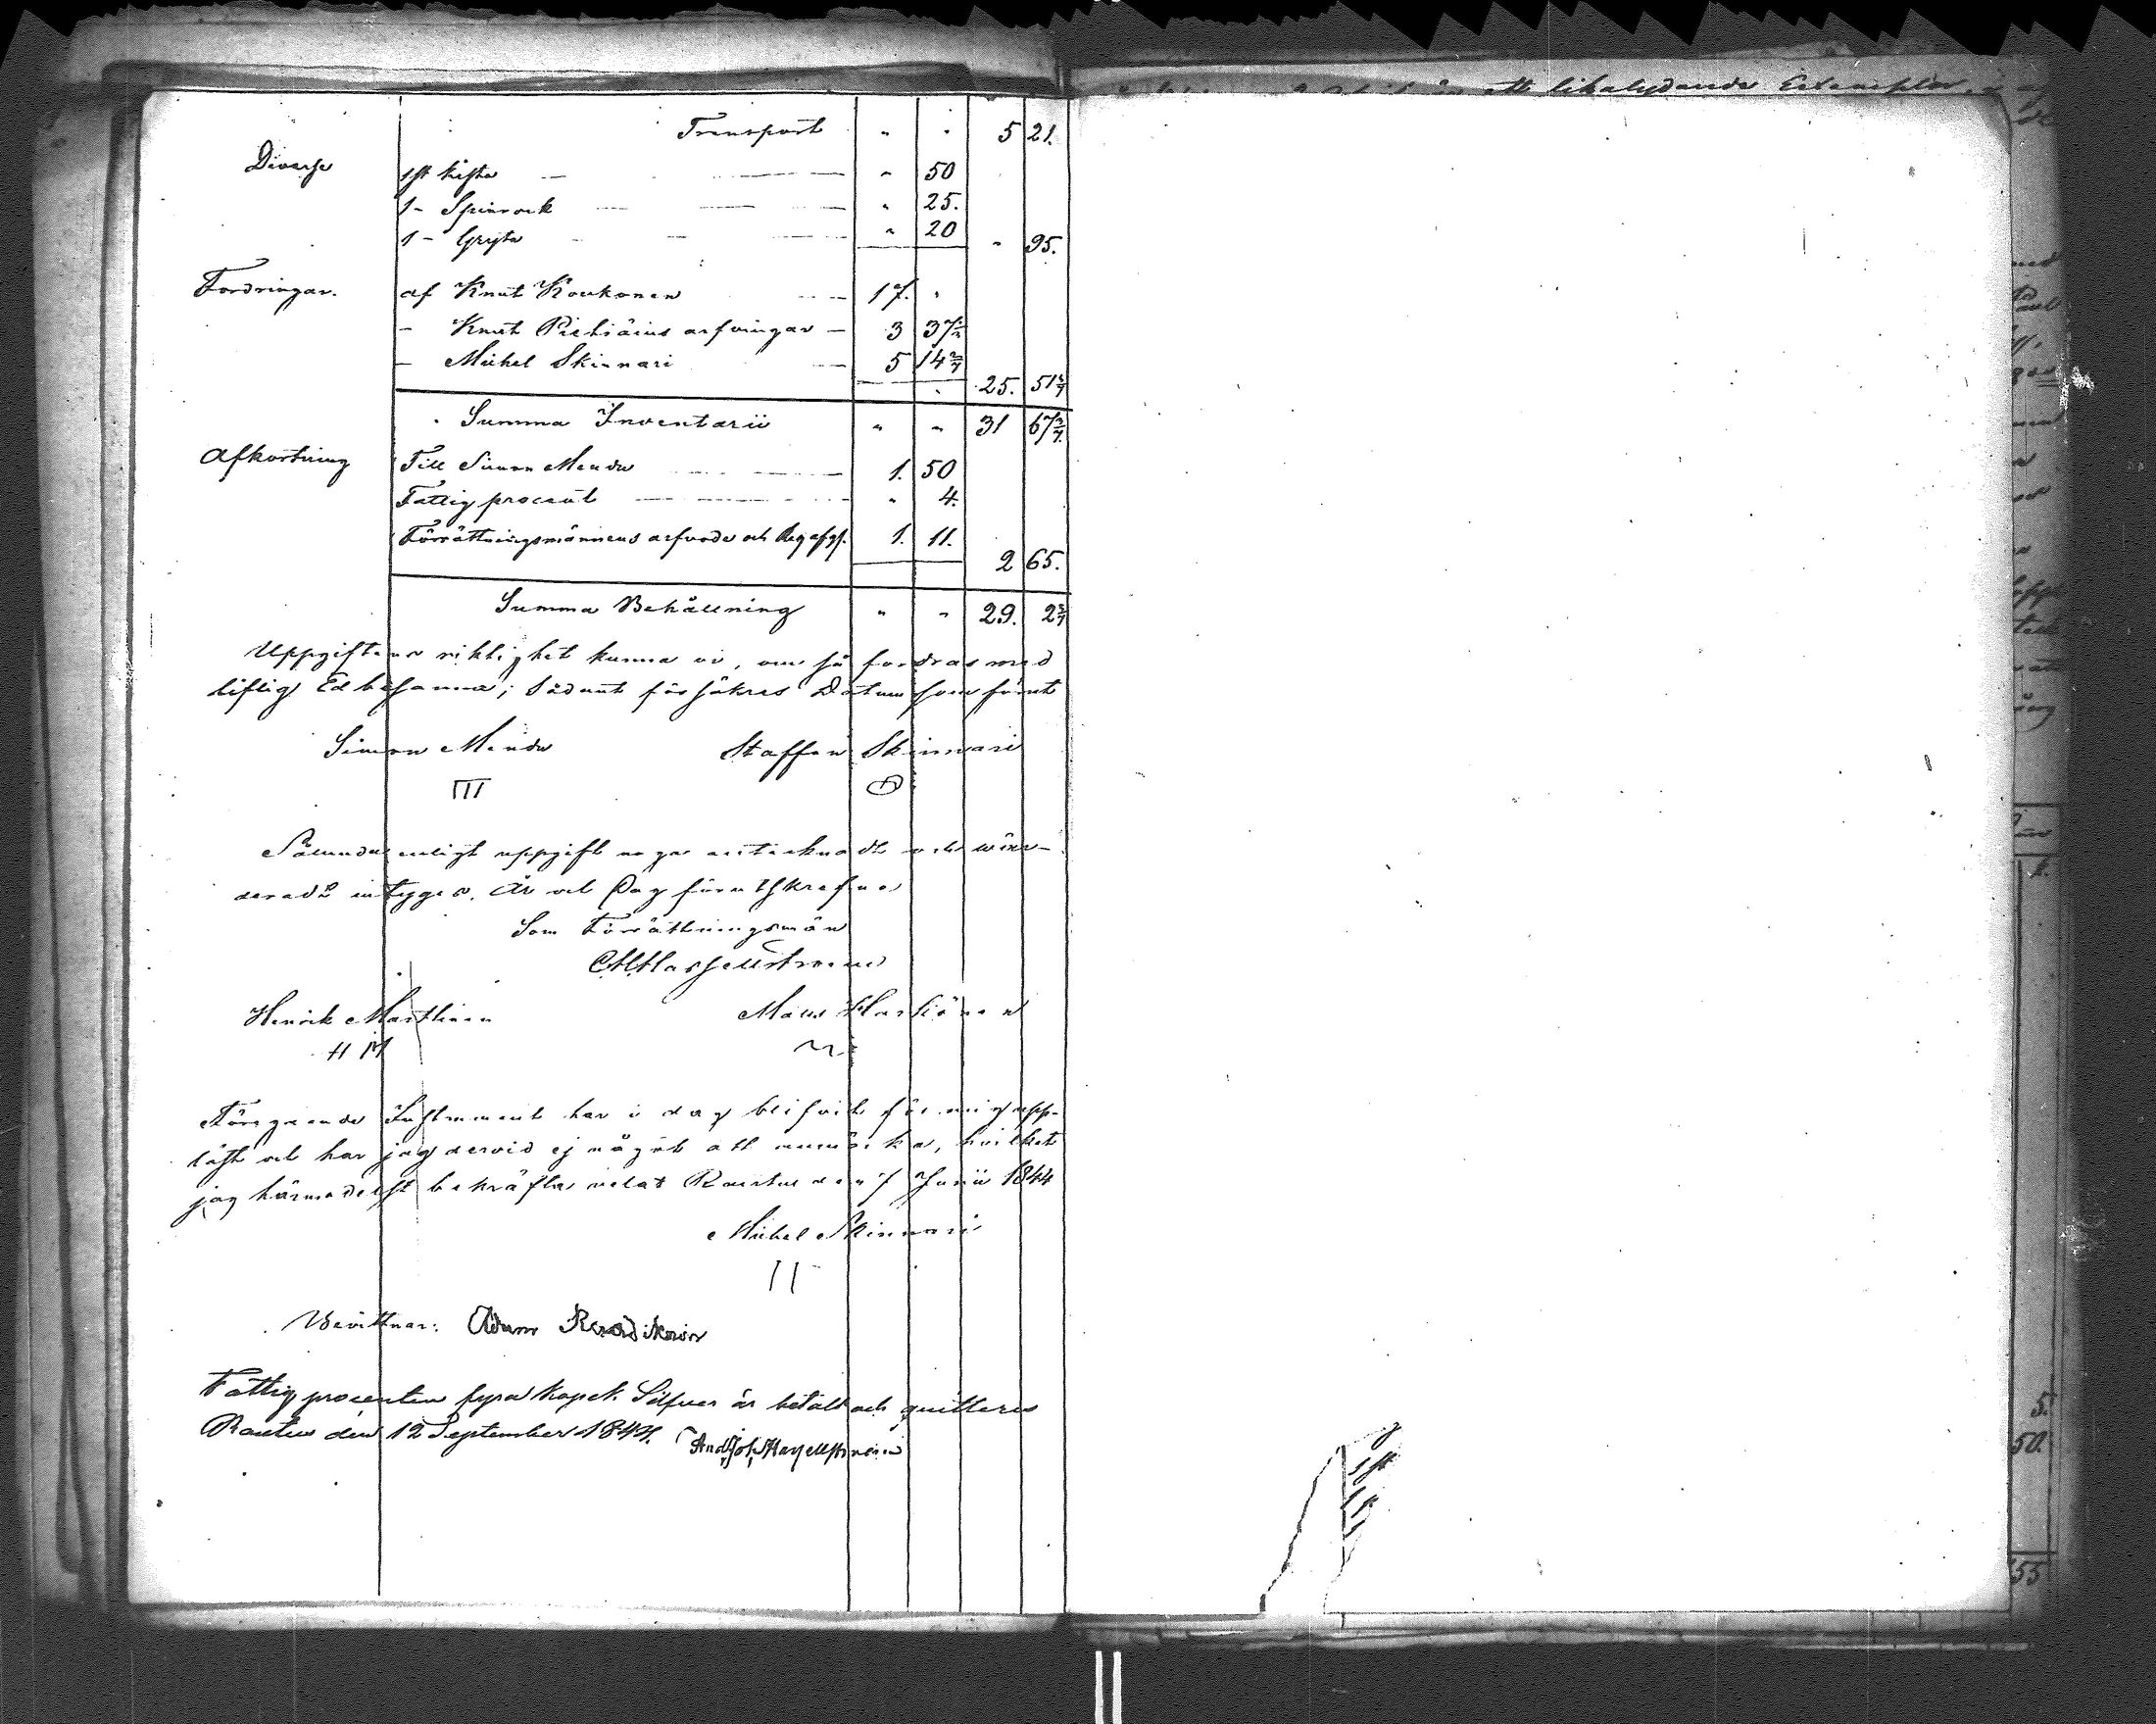 Transport " " 5 21.
Diverse 1 st kista " 50
1 - Spinrock " 25.
1 - Gryta " 20 " 95.
Fordringar. af Knut Koukonen 17. "
- Knut Pichiäins arfvingar 3 37½
- Michel Skinnari 5 14 2/7
25. 51
Summa Inventarii " " 31 67
Afkortning Till Simon Mendu 1. 50
Fattig procent " 4.
Förrättningsmännens arfvode och 1. 11.
2 65.
Summa Behållning " " 29. 2
Uppgiftens riktighet kunna vi, om så fordras med
liflig Ed besanna; sådant försäkres Datum som förut
Simon Mendu Staffan Skinnari
III
Sålunda enligt uppgift noga antecknadt och wär-
deradt intyges. År och Dag förutskrefne
Som Förrättningsmän
Henrik Marttinen Måns
HM
Föregående Instrument har i dag blifvit för mig upp-
läst och har jag dervid ej något att anmärka, hvilket
jag härmedelst bekräftar relat Rautus den 7 Junii 1844
Michel Skinnari
II
Bevittnar: Adam
Fattig procenten fyra kopek Silfver är betalt och quitteras
Rautus den 12 September 1844.
ett likalydande Exemplar